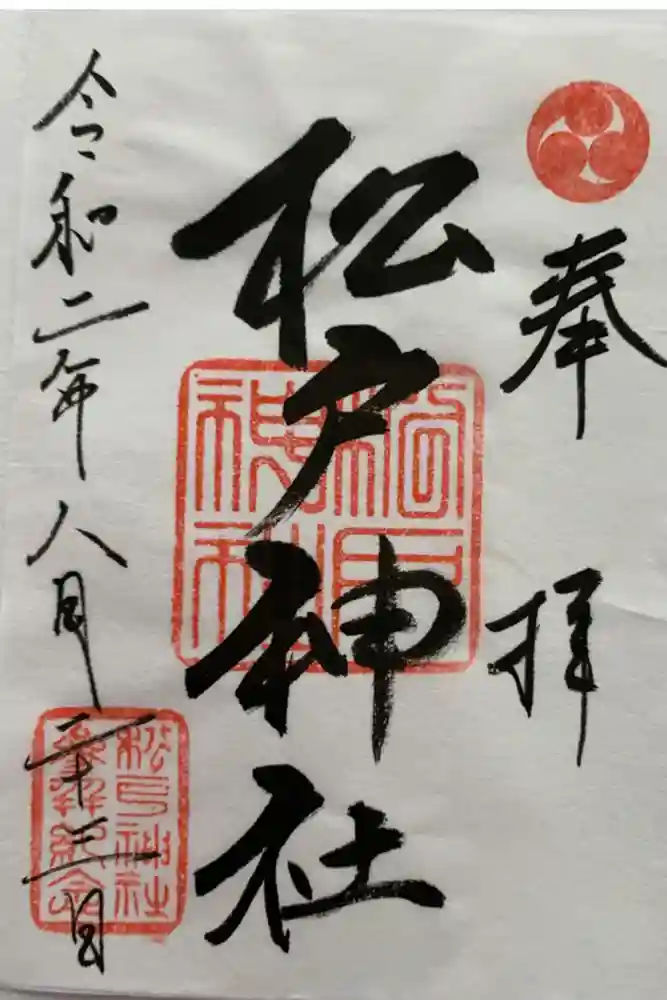 奉拝
松戸神社
令和二年八月二十三日
松戸神社
松戸神社
参拝紀念